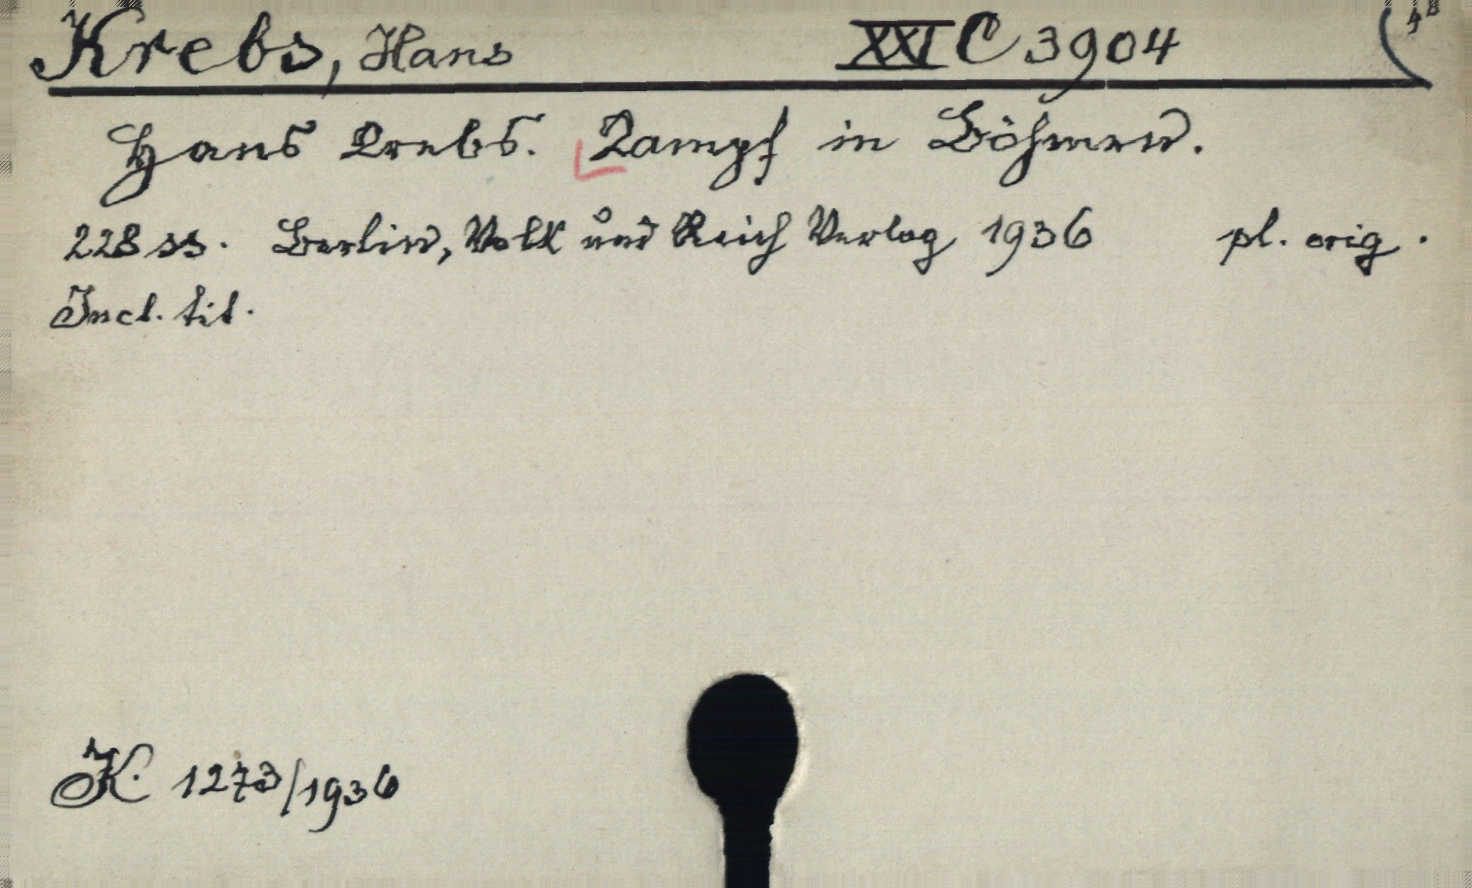 Krebs, Hans XXI C 3904
Hans Krebs. Kampf in Böhmen.
228 ss. Berlin, Volk und Reich Verlag 1936 pl. orig.
Incl. tit.
K 1273/1936